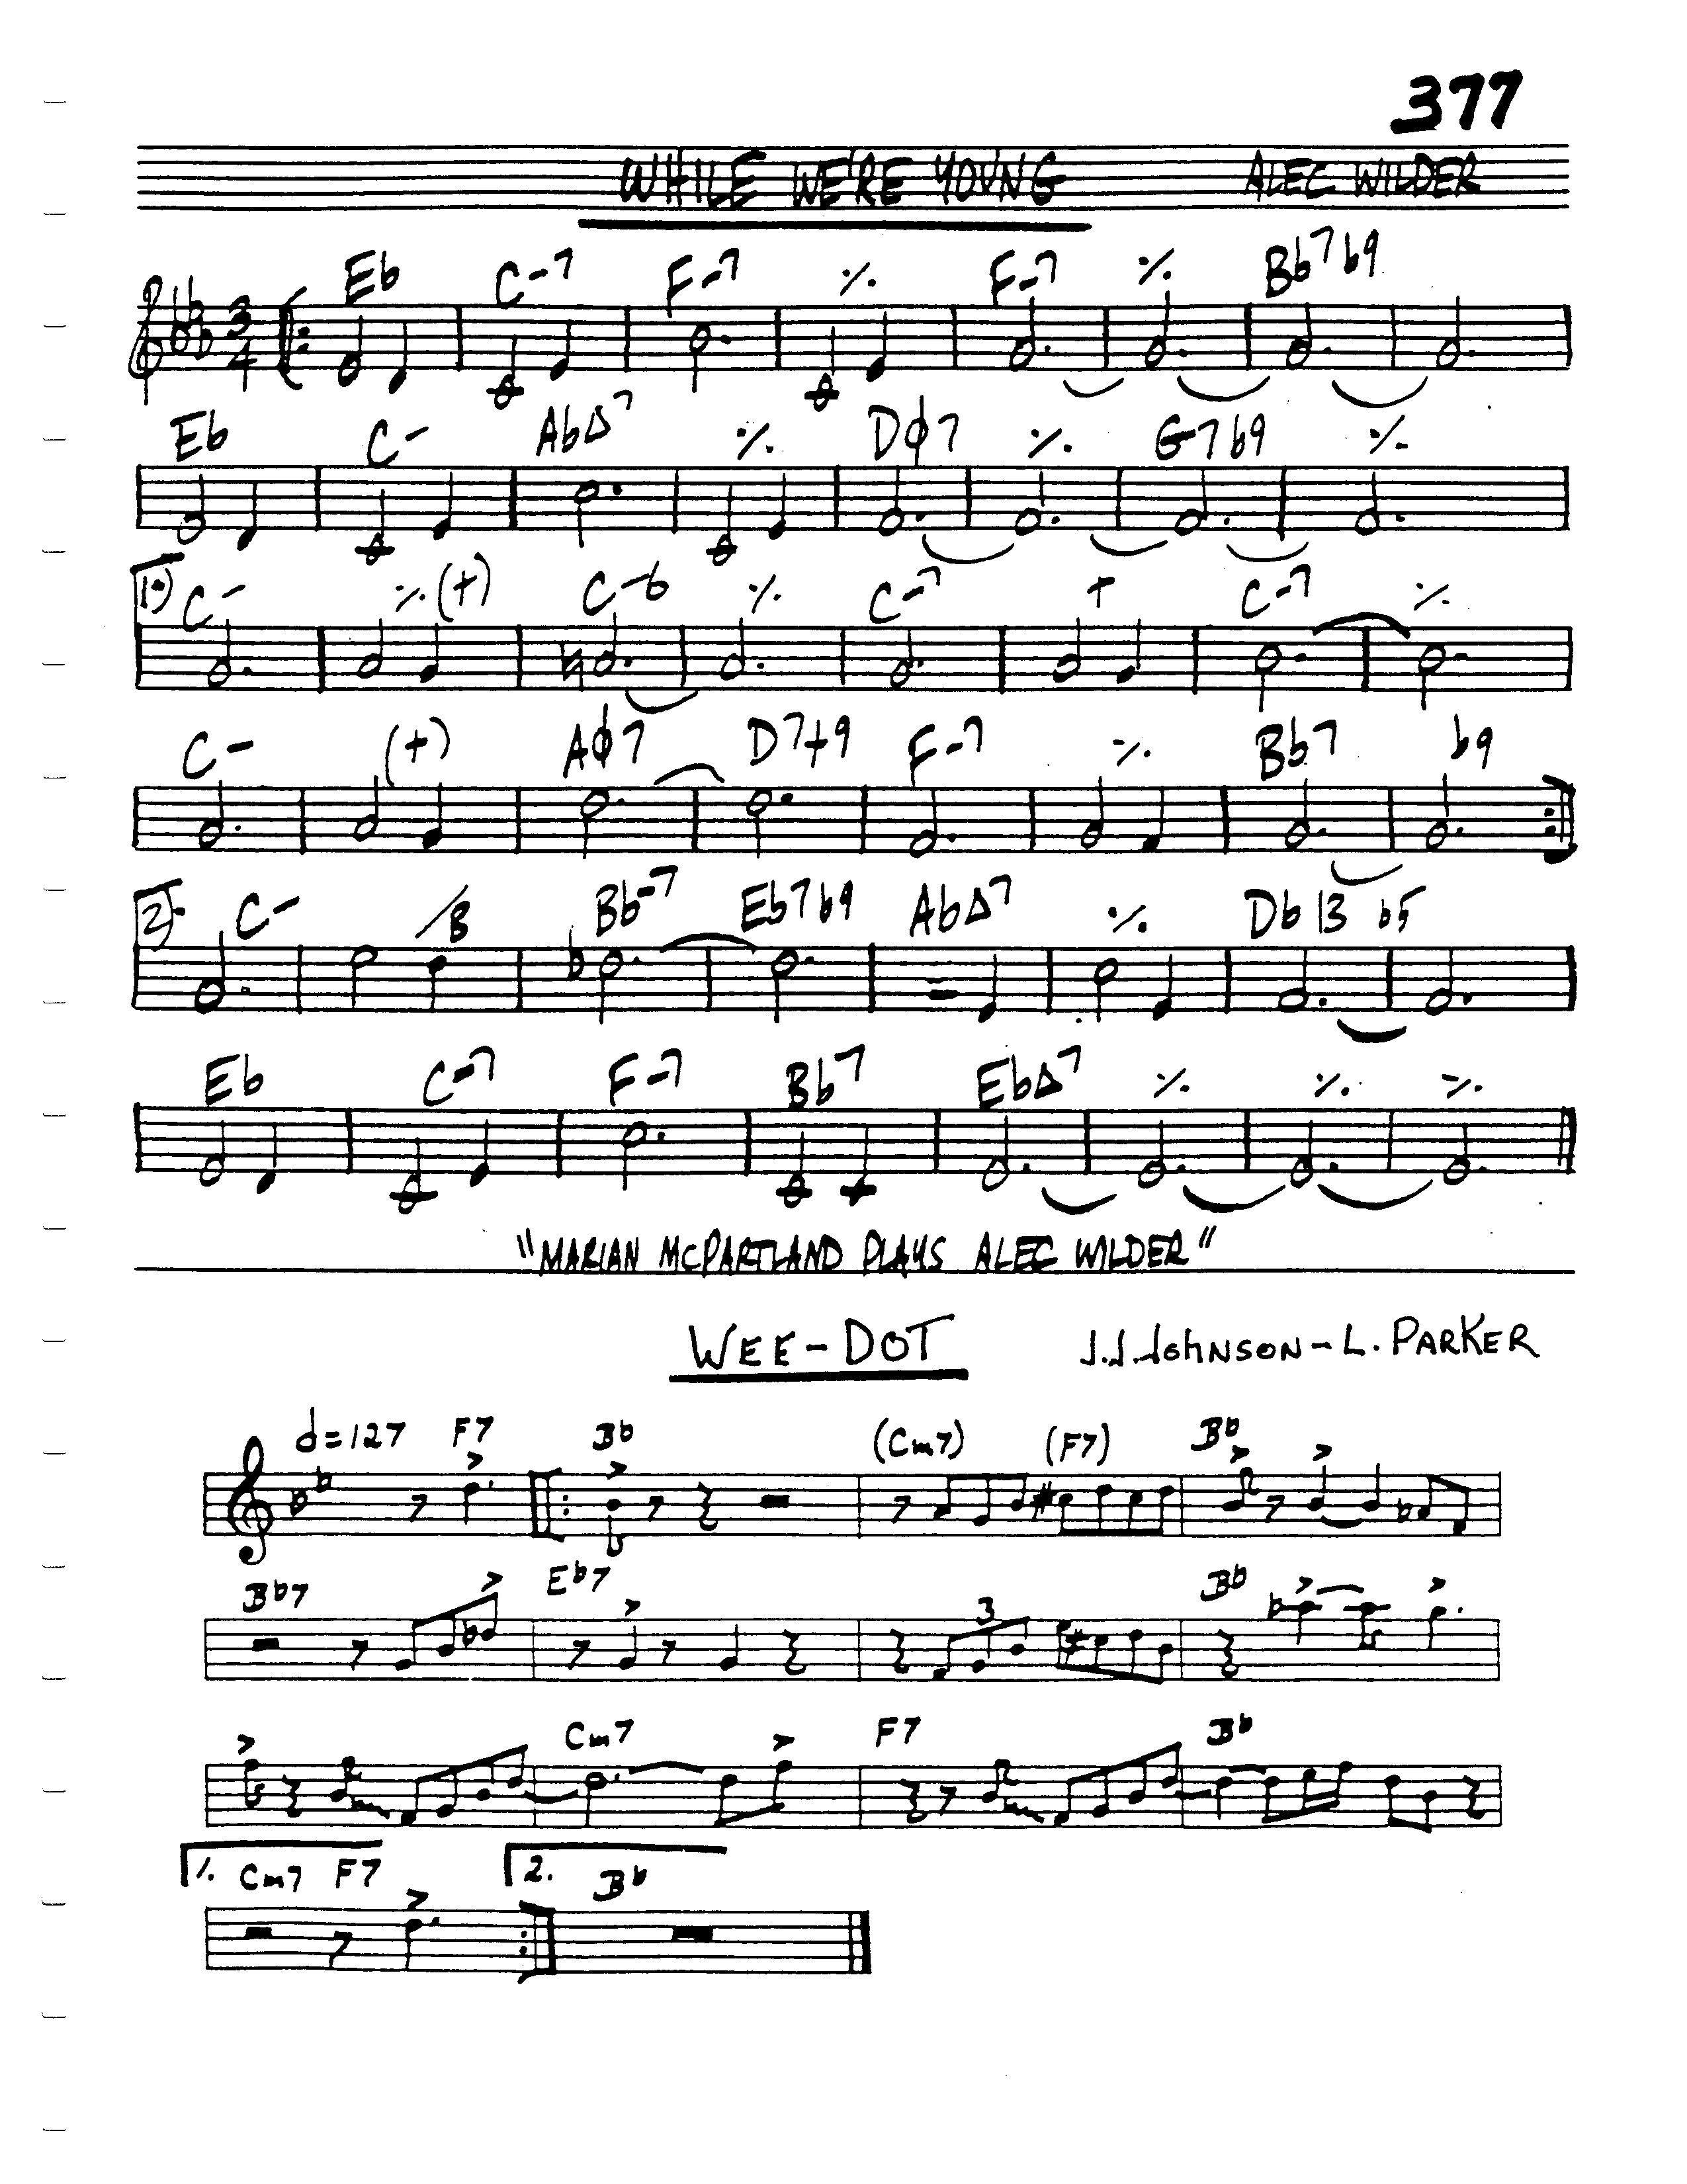 377
WHILE WE'RE YOUNG ALEC WILDER
Eb C-7 F-7 ٪ F-7 ٪ Bb7b9
3/4
Eb C- AbΔ7 ٪ Dϕ7 ٪ G7b9 ٪
1.) C- ٪ (+) C-6 ٪ C-7 + C-7 ٪
C- (+) Aϕ7 D7+9 F-7 ٪ Bb7 b9
2. C- /B Bb-7 Eb7b9 AbΔ7 ٪ Db13 b5
Eb C-7 F-7 Bb7 EbΔ7 ٪ ٪ ٪
"MARIAN McPARTLAND PLAYS ALEC WILDER"
WEE-DOT J.J. JOHNSON - L. PARKER
𝅗𝅥=127 F7 Bb (Cm7) (F7) Bb
Bb7 Eb7 3 Bb
Cm7 F7 Bb
1. Cm7 F7 2. Bb